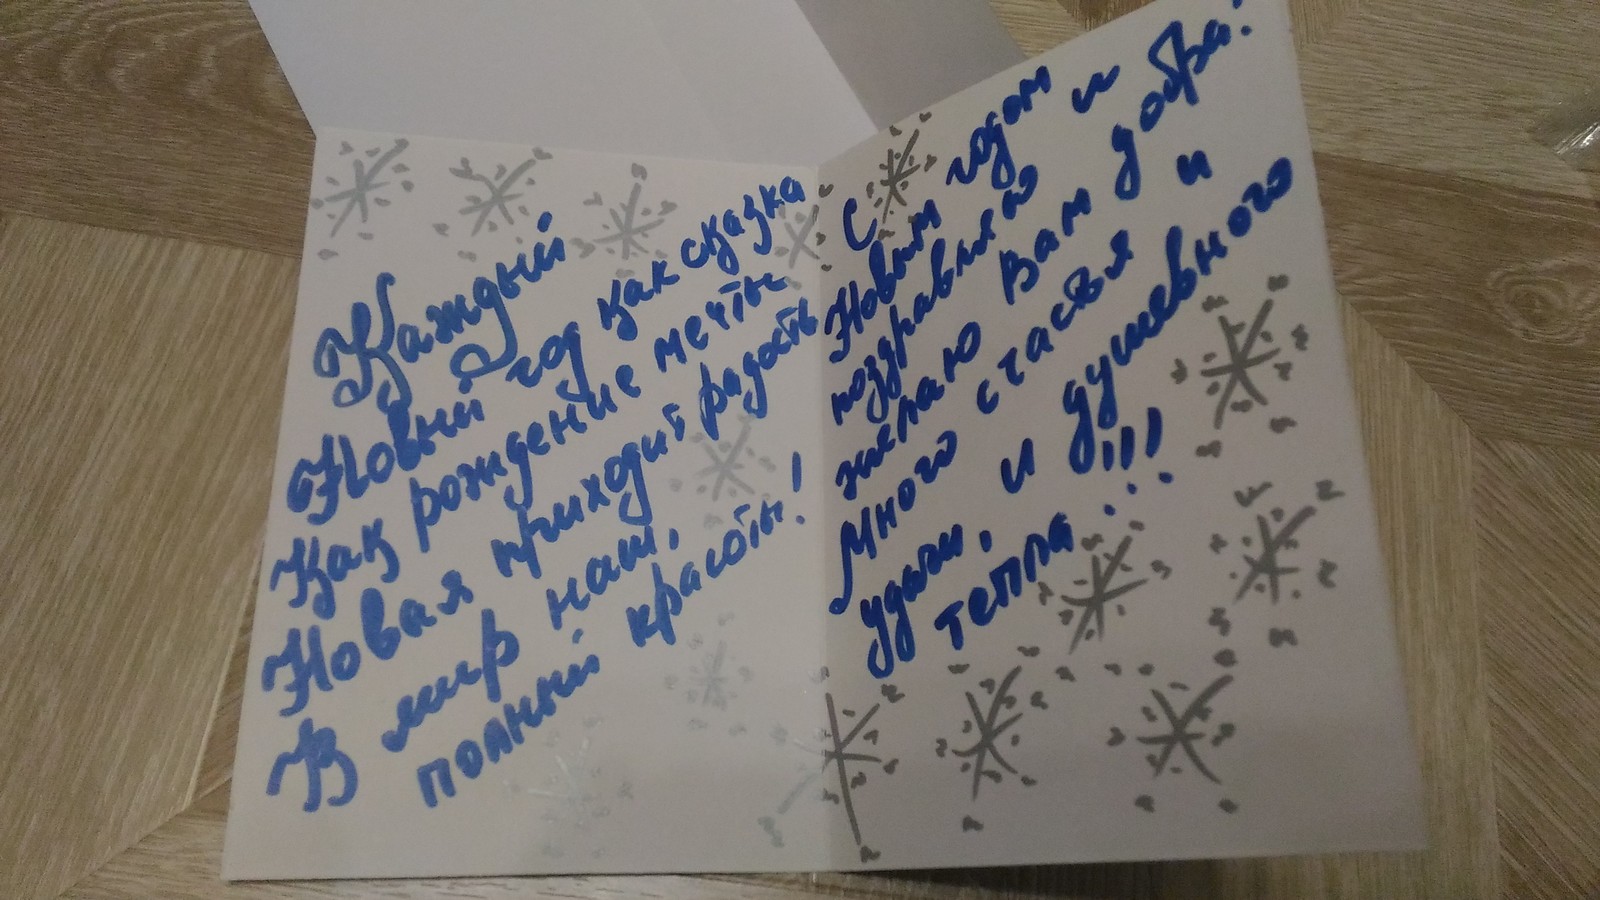 Каждый
Новый год как сказка
Как рождение мечты
Новая приходит радость
В мир наш,
полный красоты!
С
Новым годом
поздравляю и
желаю Вам добра!
Много счастья и
удачи, и душевного
тепла!!!